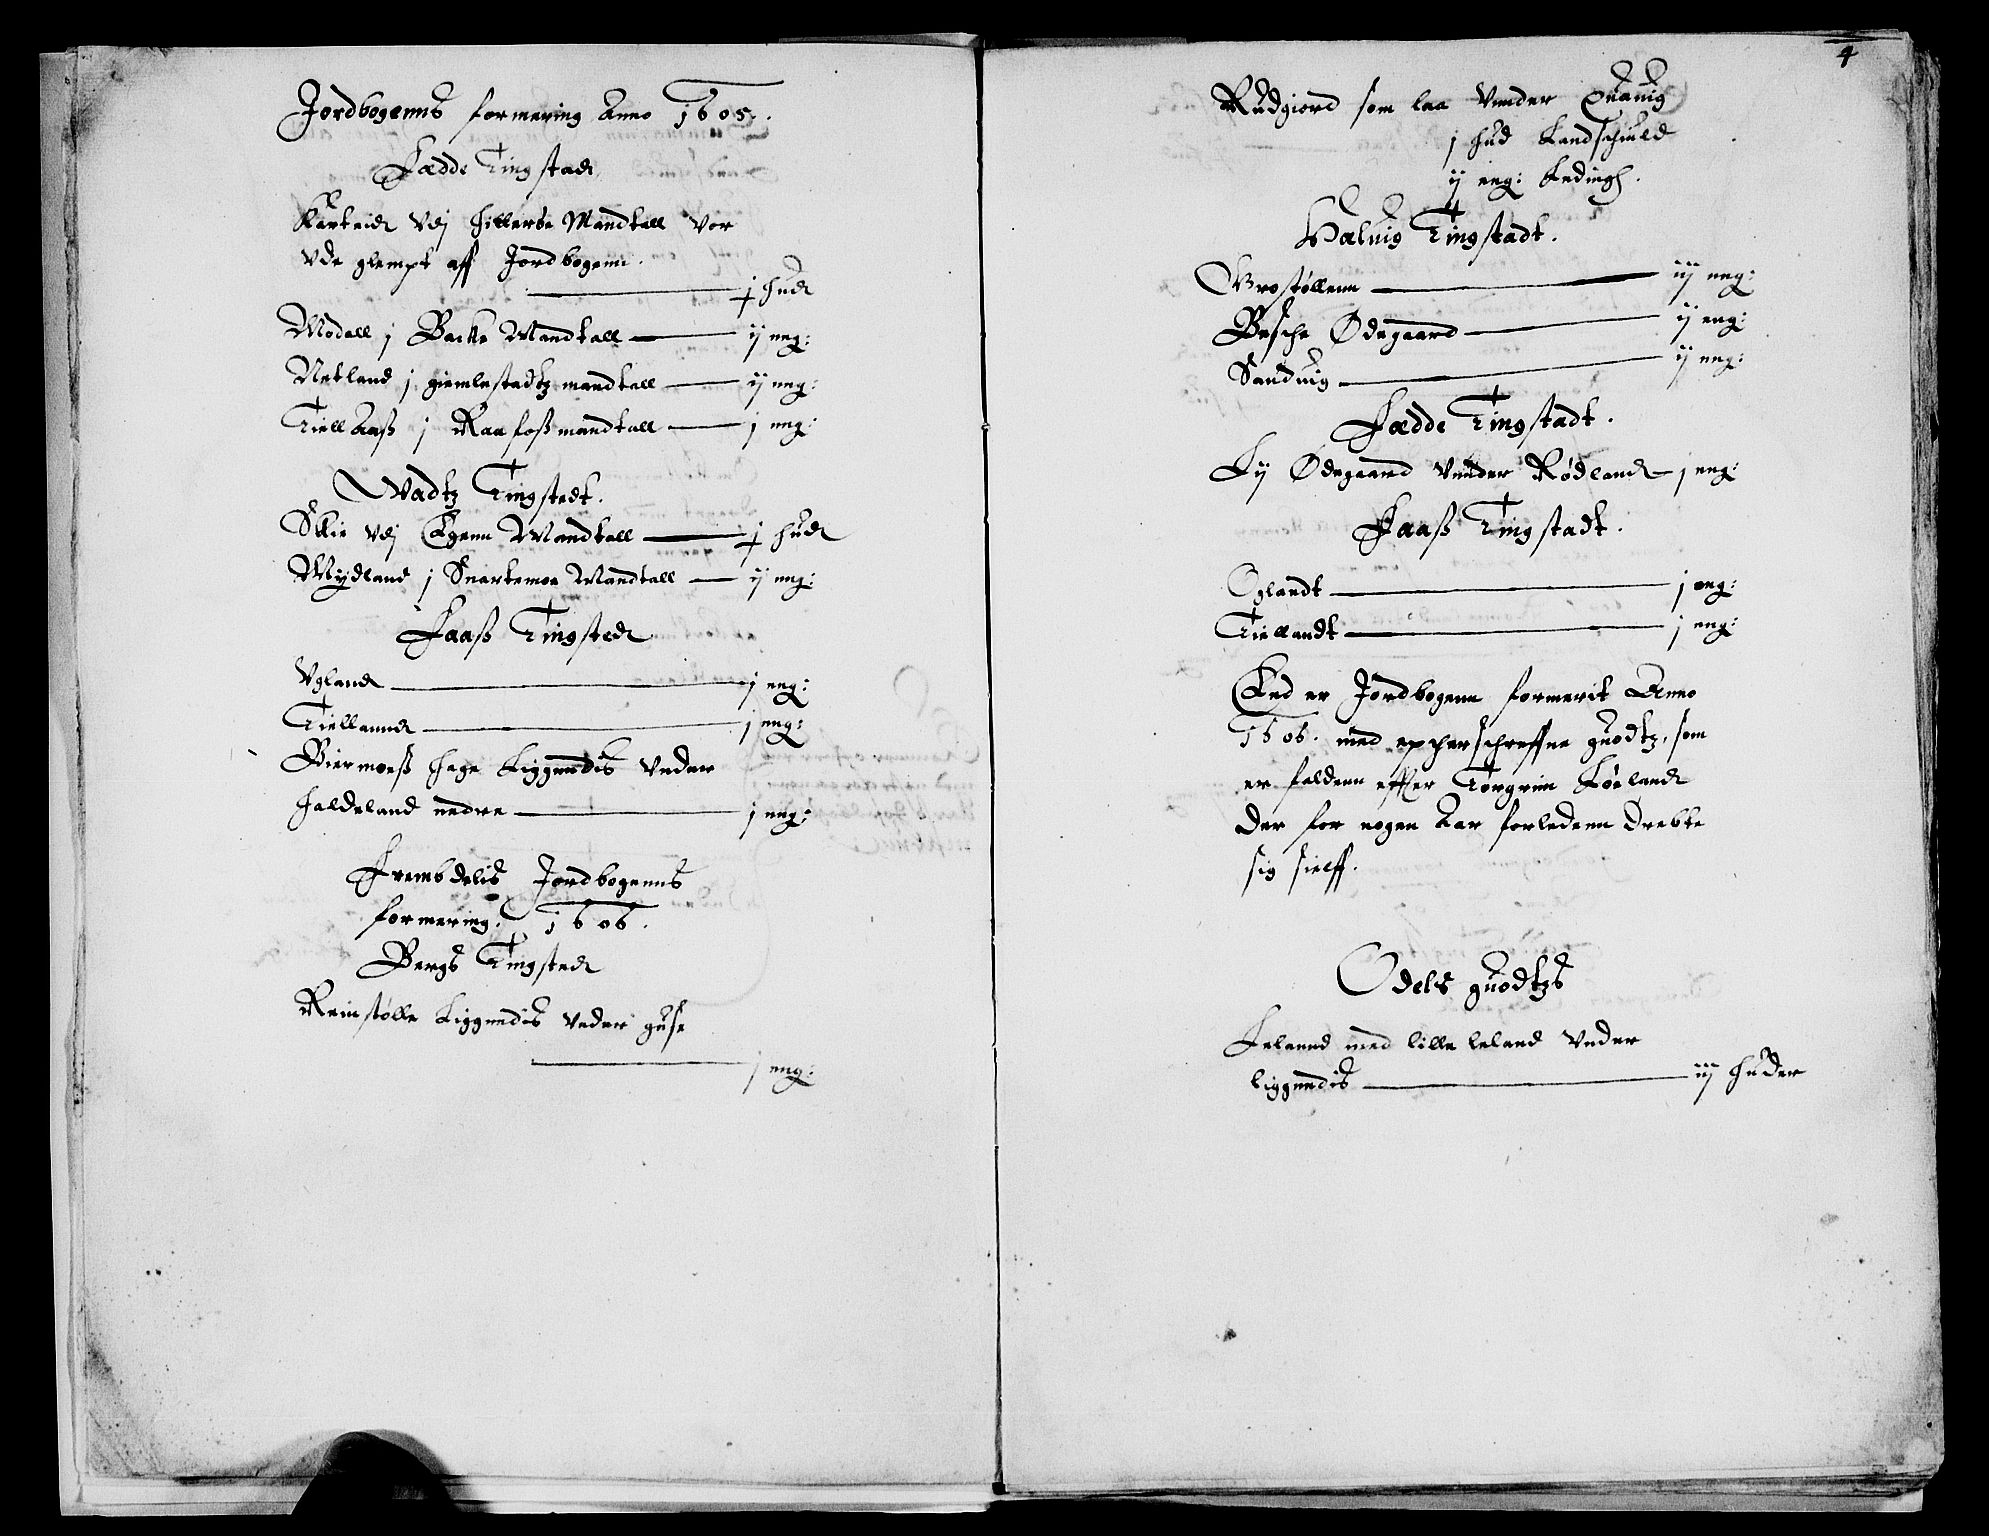 Jordbogenns formering Anno 1605.
Fædde Tingstad
Karkeid vdj Hillerbe Mandtall vor
vde glempt aff Jordbogenn.
j hud
Modall j Backe Mandtall ij eng:
Netland j giemlestadtz mandtall ij eng:
Tiell Aaß j Raafoß mandtall j eng:
Wadtz Tingstedt.
Skie vdj Egenn Mandtall j hud
Mydland j Snartemoe Mandtall ij eng:
Faaß Tingsted
Vgland j eng:
Tiellannd j eng:
Biermoeß Hage Liggendis vnder
Haldeland nedre j eng:
Frembdelis Jordbogenns
formering. 1606.
Bergs Tingsted
Reinstølle Liggendis vnder guse
j eng:
4
Rudgiord som laa vnnder Quauig
j hud Landschuld
ij eng: Leding.
Haluig Tingstadt.
Brostøllenn iij eng:
Besche Ødegaard ij eng:
Sanduig ij eng:
Fædde Tingstadt.
Ly Ødegaard vnnder Rødland j eng:
Faaß Tingstadt.
Oglandt j eng:
Tiellandt j eng:
End er Jordbogenn formerit Anno
1606. med epcherschreffne guodtz, som
er faldenn effter Torgrim Føeland
der for nogen Aar forledenn drebte
sig sielff.
Odels guodtzs
Feland med lille leland vnder
liggendis iij huder